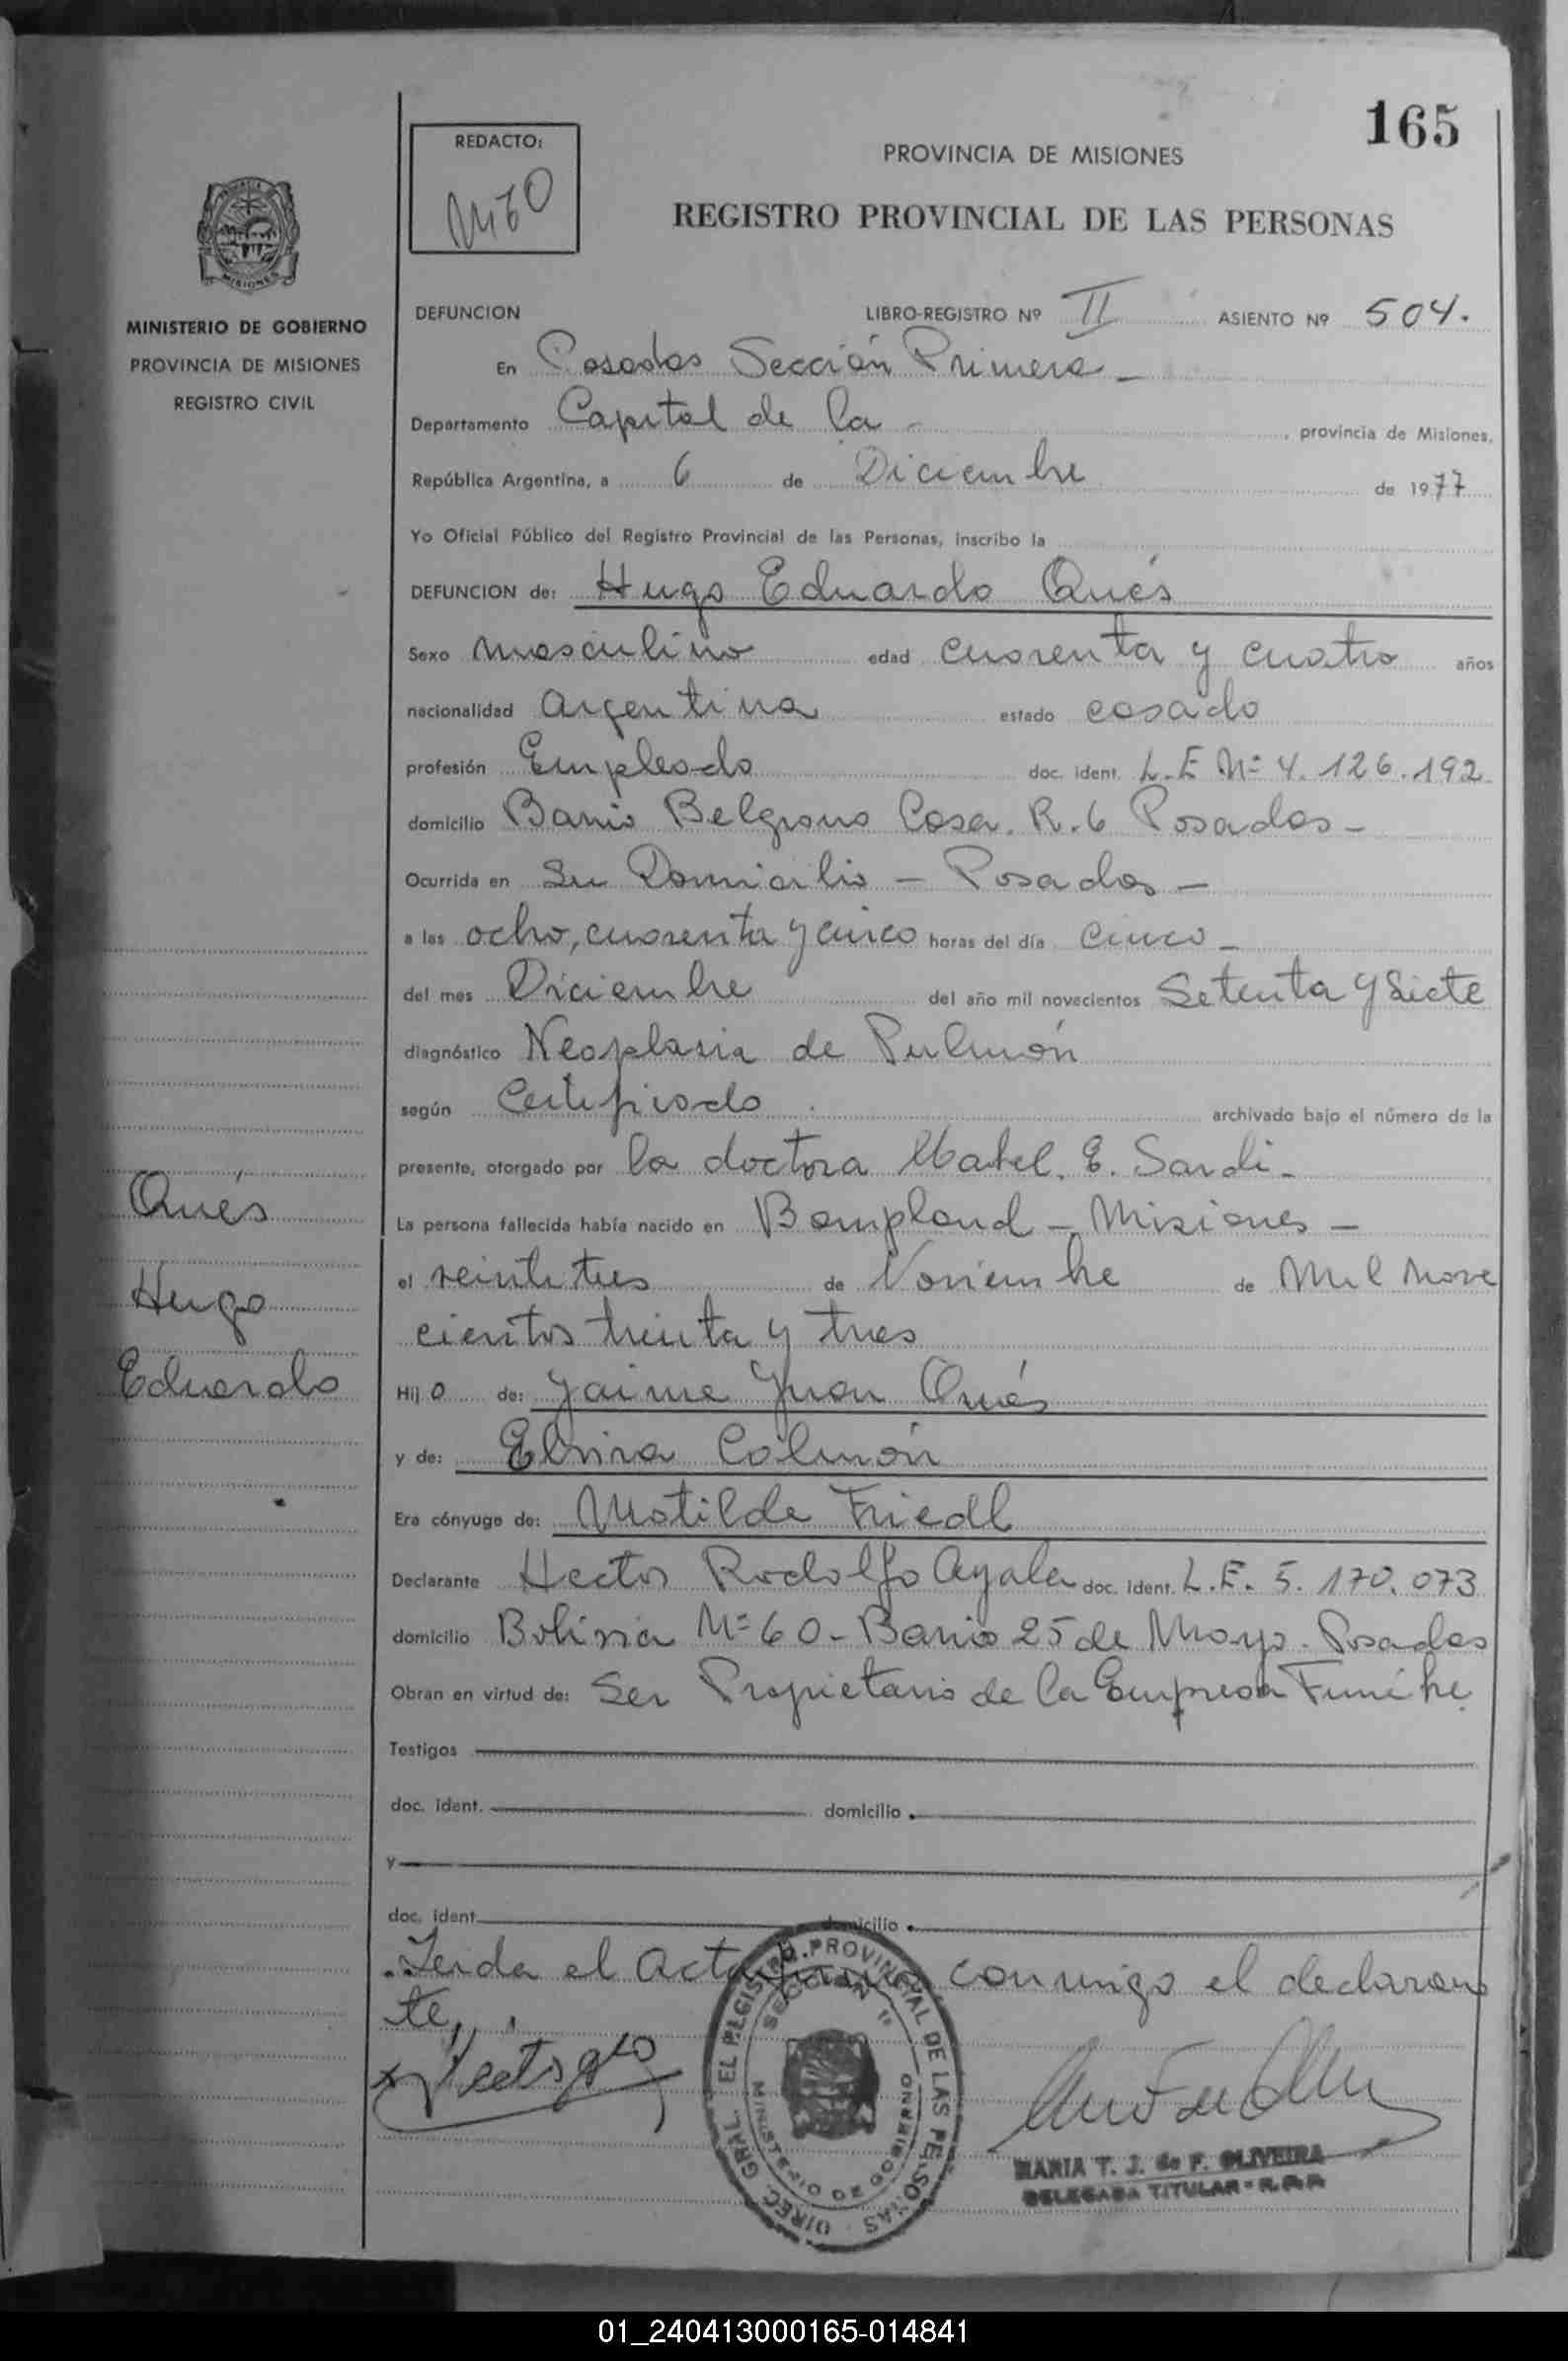 165
REDACTO:
PROVINCIA DE MISIONES
REGISTRO PROVINCIAL DE LAS PERSONAS
MISIONES
MINISTERIO DE GOBIERNO
PROVINCIA DE MISIONES
REGISTRO CIVIL
DEFUNCION LIBRO-REGISTRO Nº II ASIENTO Nº 504.
En Posadas Sección Primera -
Departamento Capital de la - , provincia de Misiones,
República Argentina, a 6 de Diciembre de 1977
Yo Oficial Público del Registro Provincial de las Personas, inscribo la
DEFUNCION de: Hugo Eduardo Qués
Sexo masculino edad cuarenta y cuatro años
nacionalidad Argentina estado casado
profesión Empleado doc. ident. L.E Nº 4.126.192
domicilio Barrio Belgrano Casa. R.6 Posadas -
Ocurrida en Su Domicilio - Posadas -
a las ocho, cuarenta y cinco horas del día cinco -
del mes Diciembre del año mil novecientos Setenta y Siete
diagnóstico Neoplasia de Pulmón
según Certificado archivado bajo el número de la
presente, otorgado por la doctora Mabel. E. Sardi -
La persona fallecida había nacido en Bompland - Misiones -
el veintitres de Noviembre de Mil Nove
cientos treinta y tres
Hij o de: Jaime Juan Qués
y de: Elvira Colmán
Era cónyuge de: Matilde Friedl
Declarante Hector Rodolfo Ayala doc. ident. L.E. 5.170.073
domicilio Bolivia Nº 60 - Barrio 25 de Mayo. Posadas
Obran en virtud de: Ser Propietario de la Empresa Funebre
Testigos
doc. ident. domicilio
y
doc. ident. domicilio
Leida el Acta firma conmigo el declaran
te,
Qués
Hugo
Eduardo
DIREC. GRAL. EL REGISTRO PROVINCIAL DE LAS PERSONAS
SECCION 1ª
MINISTERIO DE GOBIERNO
MARIA T. J. de F. OLIVEIRA
DELEGADA TITULAR - R.P.P.
01_240413000165-014841